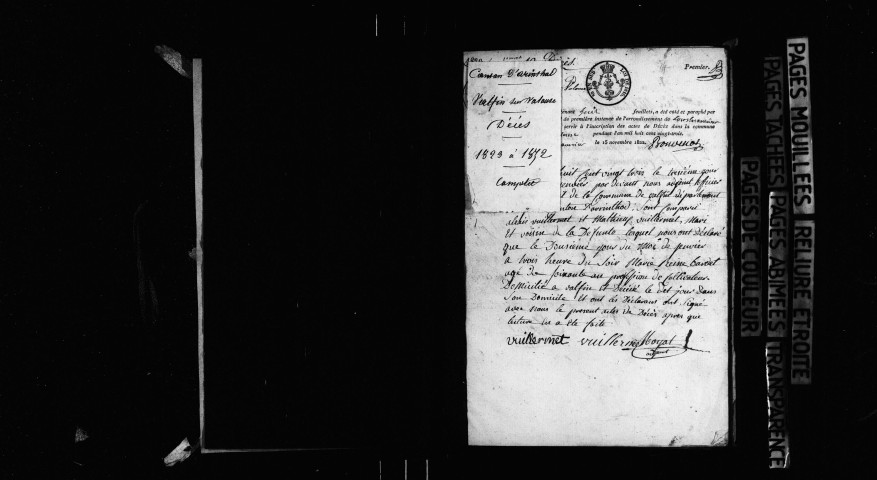 Canton D'arinthod
Valfin sur Valouse
Décès
1823 à 1872
Complet
Premier.
feuillets, a été coté et paraphé par
de première instance de l'arrondissement de
servir à l'inscription des actes de Décès dans la commune
pendant l'an mil huit cent vingt-trois.
le 15 novembre 1822.
huit cent vingt trois le treizième jour
par devant nous adjoint officier
de la Commune de valfin département
Canton D'arinthod. Sont Comparus
vuillermet et Mathieu vuillermet, Mari
et voisin de la Defunte lesquel nous ont Déclaré
que le Deusième jour du Mois de janvier
a trois heure du Soir Marie Reine
agé de Soixante an profession de Cultivateur
Domicilié a valfin et Décédé le dit jour Dans
Son Domicile Et ont les Déclarans ont Signé
avec nous le present actes de Décès apres que
lecture leur a été faite
vuillermet vuillermet Moyat
adjoint
PAGES MOUILLEES
RELIURE ETROITE
PAGES TACHEES
PAGES ABIMEES
TRANSPARENCE
PAGES DE COULEUR